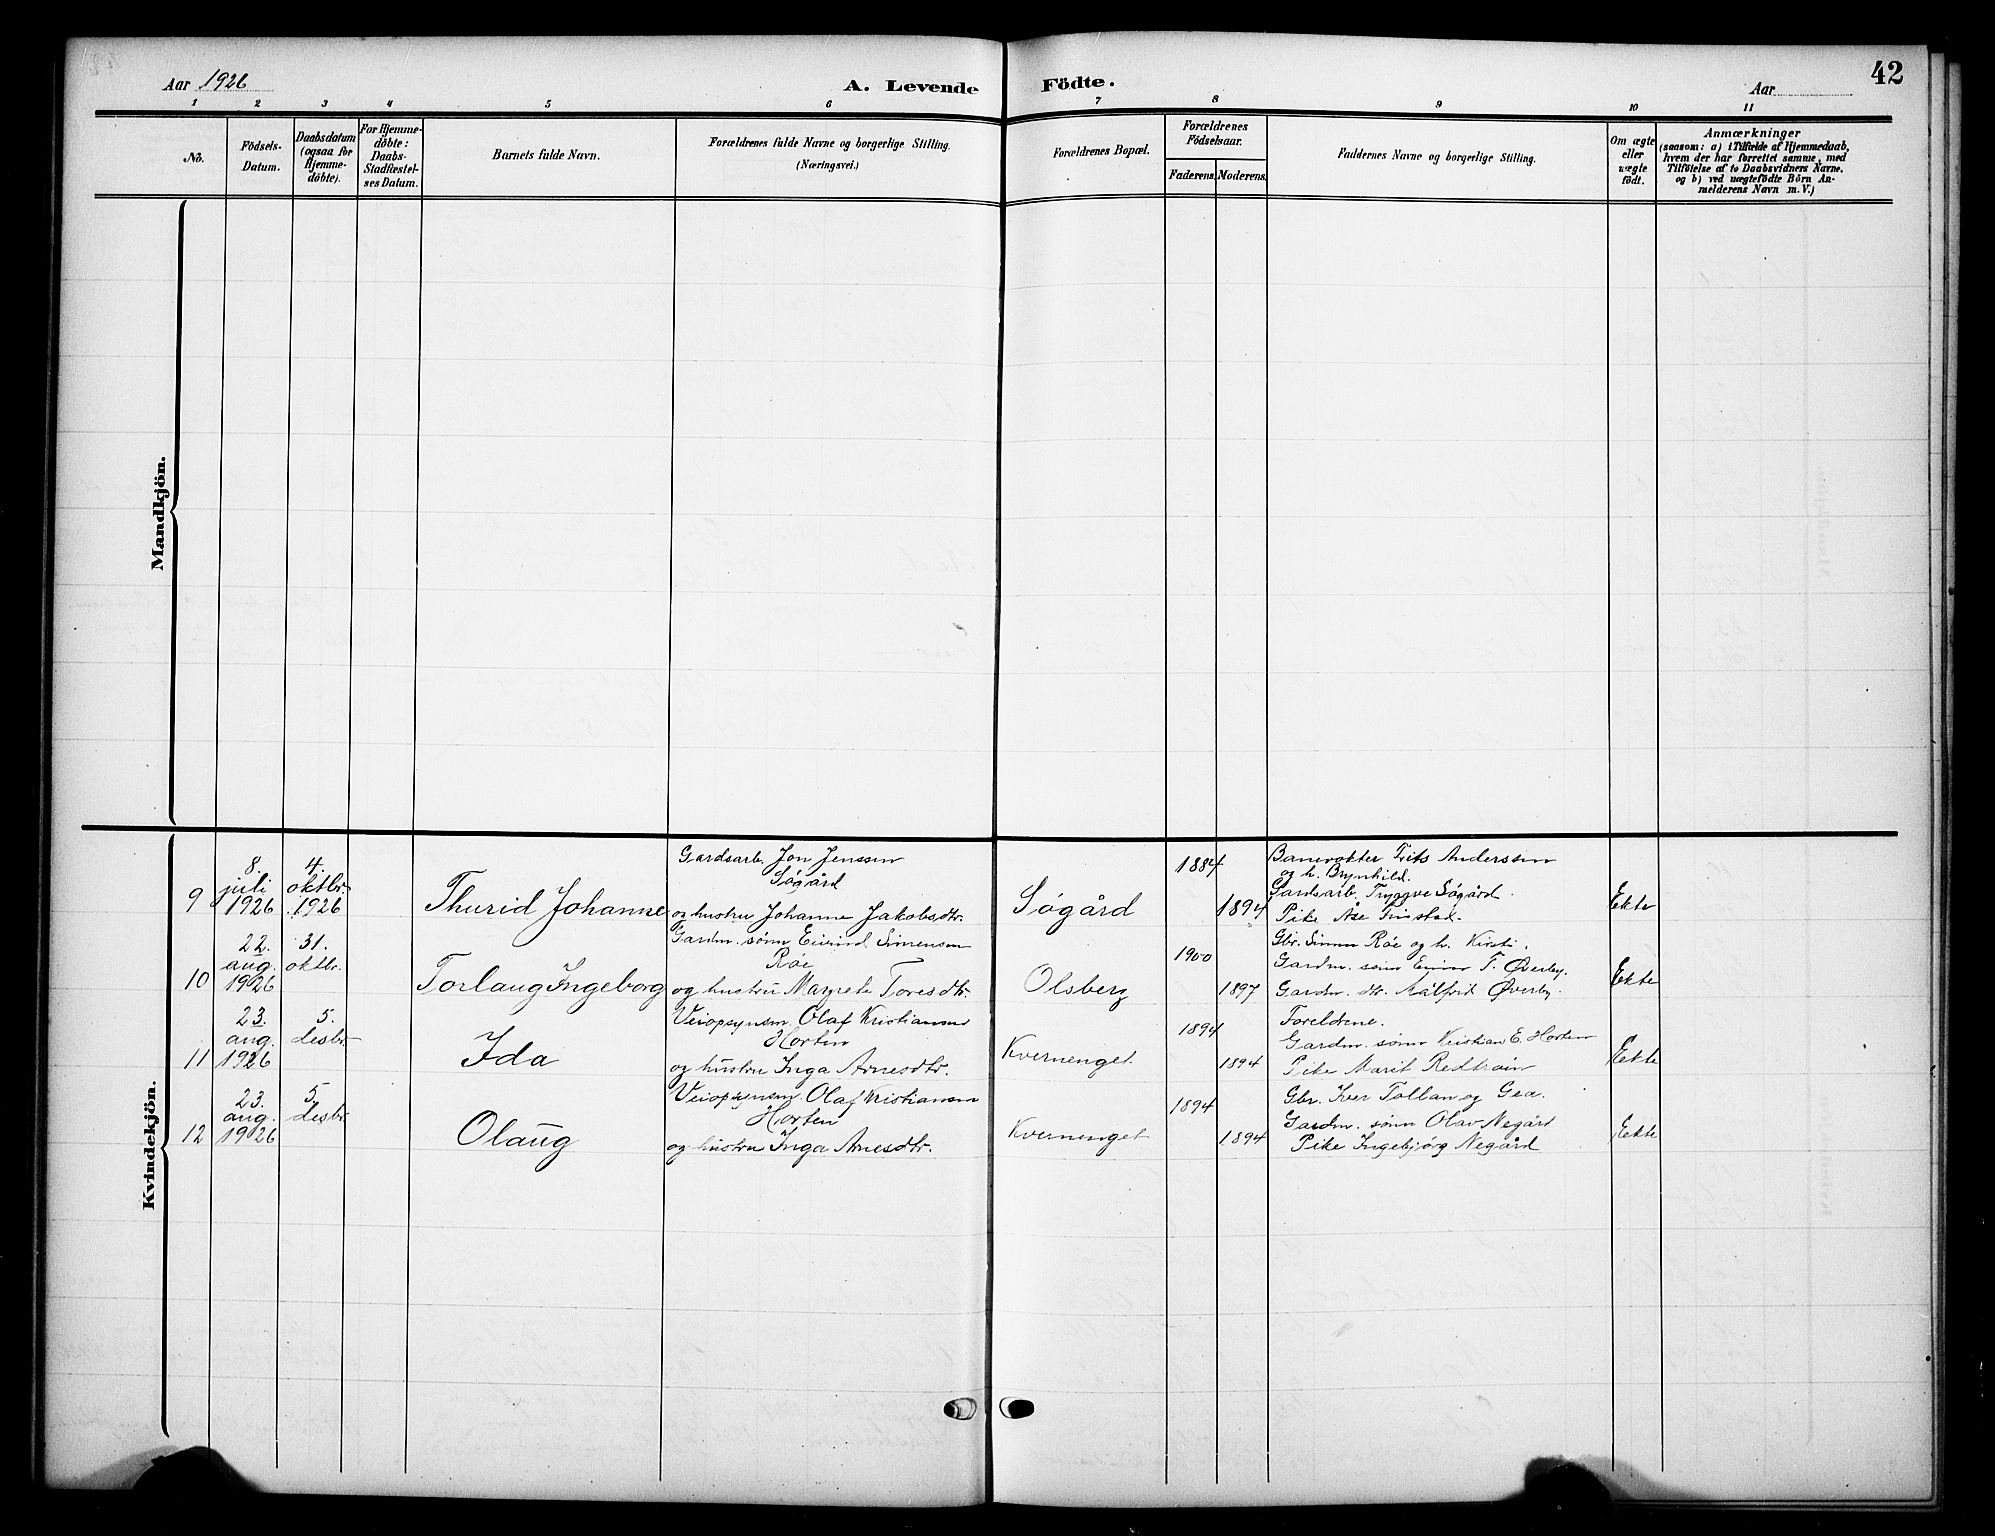 Aar 1926
A. Levende Födte.
Aar
42
1 2 3 4 5 6 7 8 9 10 11
No.
Födsels-Datum.
Daabsdatum (ogsaa for Hjemmedöbte).
For Hjemmedöbte: Daabs-Stadfæstelses Datum.
Barnets fulde Navn.
Forældrenes fulde Navne og borgerlige Stilling.
(Næringsvei.)
Forældrenes Bopæl.
Forældrenes Födselsaar.
Faderens. Moderens.
Faddernes Navne og borgerlige Stilling.
Om ægte eller uægte födt.
Anmærkninger
(saasom: a) i Tilfælde af Hjemmedaab,
hvem der har forrettet samme, med
Tilföielse af to Daabsvidners Navne.
og b) ved uægtefödte Börn An-
melderens Navn m. V.)
Mandkjön.
Kvindekjön.
9
8. juli 1926
4. oktbr. 1926
Thurid Johanne
Gardsarb. Jon Jenssen
Søgård
og hustru Johanne Jakobsdtr.
Søgård
1884
1894
Banevokter Anderssen
og h. Brynhild.
Gardsarb. Tryggve Søgård.
Pike Åse
Ekte
10
22. aug. 1926
31. oktbr.
Torlaug Ingeborg
Gardm. sønn Eivind Simensen
Røe
og hustru Margrete Toresdtr.
Olsberg
1900
1897
Gbr. Simen Røe og h. Kirsti.
Gardm. sønn Einar T. Øverby.
Gardm. dtr. Målfrid Øverby.
Ekte
11
23. aug. 1926
5. desbr.
Ida
Veiopsynsm. Olaf Kristiansen
Horten
og hustru Inga Arnesdtr.
Kvernenget
1894
1894
Foreldrene.
Gardm. sønn Kristian E. Horten
Pike Marit
Ekte
12
23. aug. 1926
5. desbr.
Olaug
Veiopsynsm. Olaf Kristiansen
Horten
og hustru Inga Arnesdtr.
Kvernenget
1894
1894
Gbr. Iver Tollan og Gea.
Gardm. sønn Olav Negård
Pike Ingebjørg Negård
Ekte